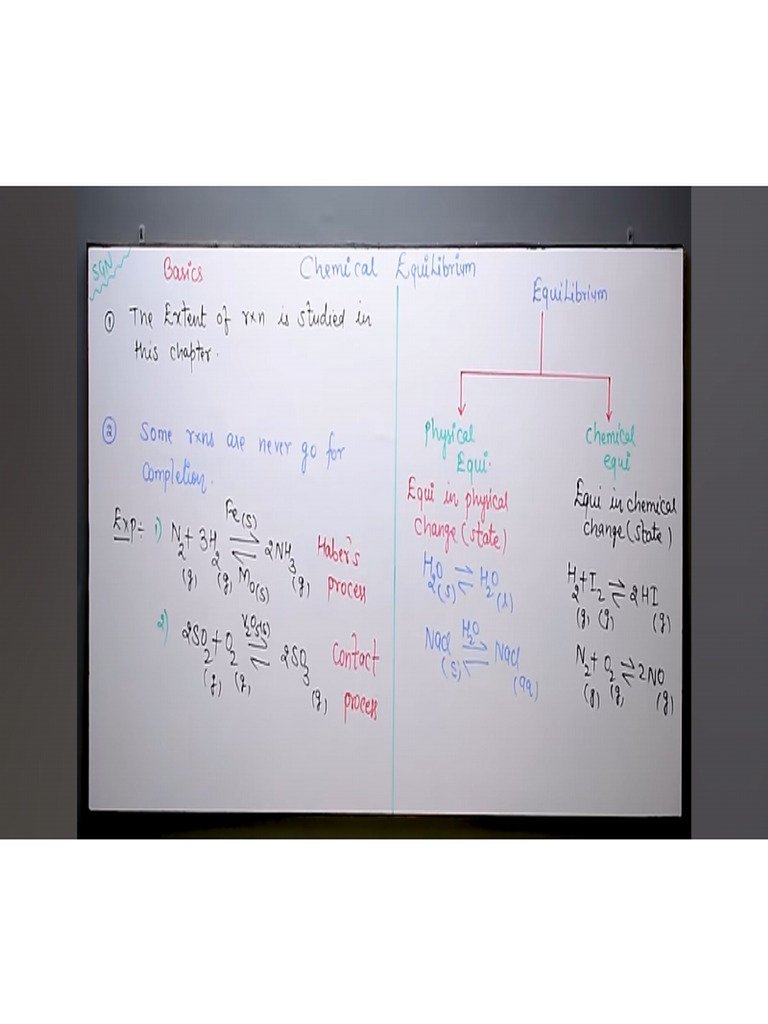 SGN
Basics Chemical Equilibrium
① The Extent of rxn is studied in
this chapter.
② Some rxns are never go for
completion.
Exp:- 1) N2 + 3H2 ⇌ 2NH3 Haber's
Fe(s)
(g) (g) Mo(s) (g) process
2) 2SO2 + O2 ⇌ 2SO3 Contact
V2O5(s)
(g) (g) (g) process
Equilibrium
Physical
Equi.
Equi in physical
change (state)
H2O(s) ⇌ H2O(l)
H2O
NaCl(s) ⇌ NaCl(aq)
Chemical
equi
Equi in chemical
change (state)
H2 + I2 ⇌ 2HI
(g) (g) (g)
N2 + O2 ⇌ 2NO
(g) (g) (g)